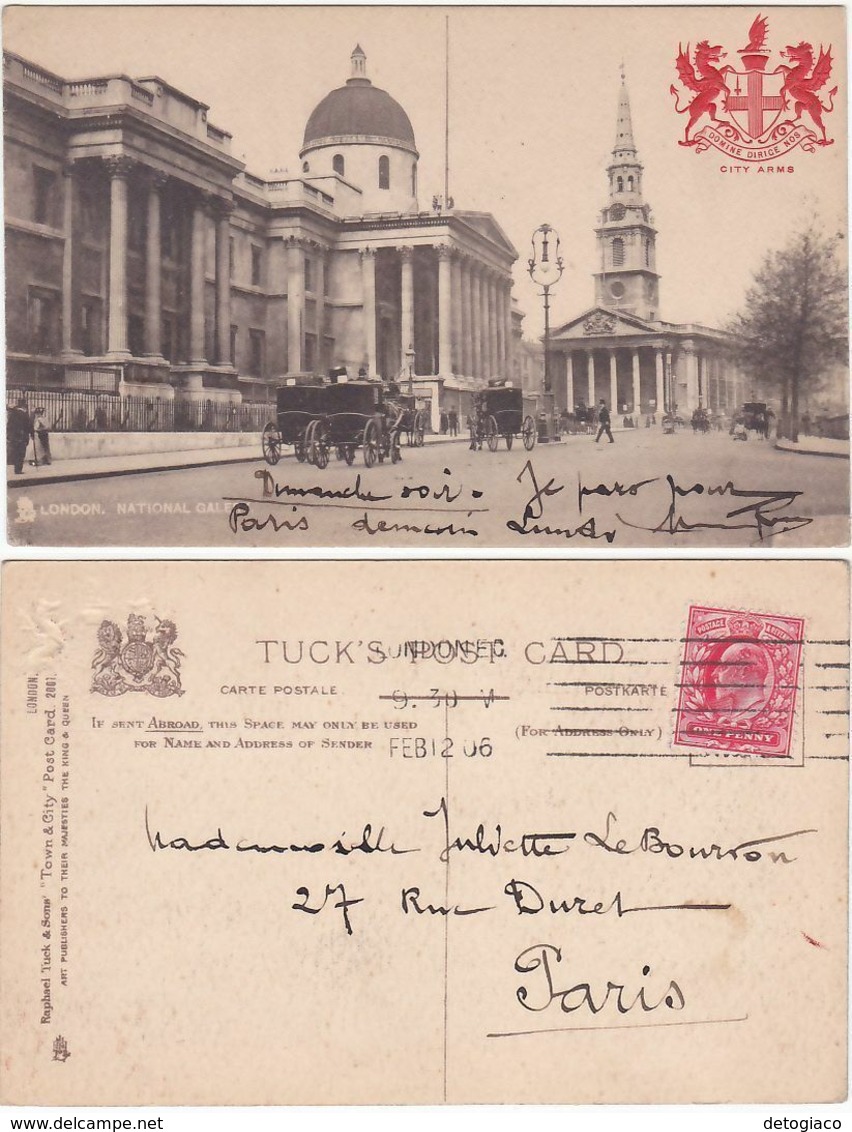 DOMINE DIRIGE NOS
CITY ARMS
Dimanche soir. Je pars pour
LONDON. NATIONAL GALE
Paris demain Lundi
TUCK'S POST CARD
LONDON E.C.
CARTE POSTALE
9.30
POSTKARTE
IF SENT ABROAD, THIS SPACE MAY ONLY BE USED
FOR NAME AND ADDRESS OF SENDER
(FOR ADDRESS ONLY)
FEB 12 06
POSTAGE
ONE PENNY
LONDON.
Raphael Tuck & Sons' "Town & City" Post Card 2001.
ART PUBLISHERS TO THEIR MAJESTIES THE KING & QUEEN
Mademoiselle Juliette LeBourdon
27 Rue Duret
Paris
detogiaco